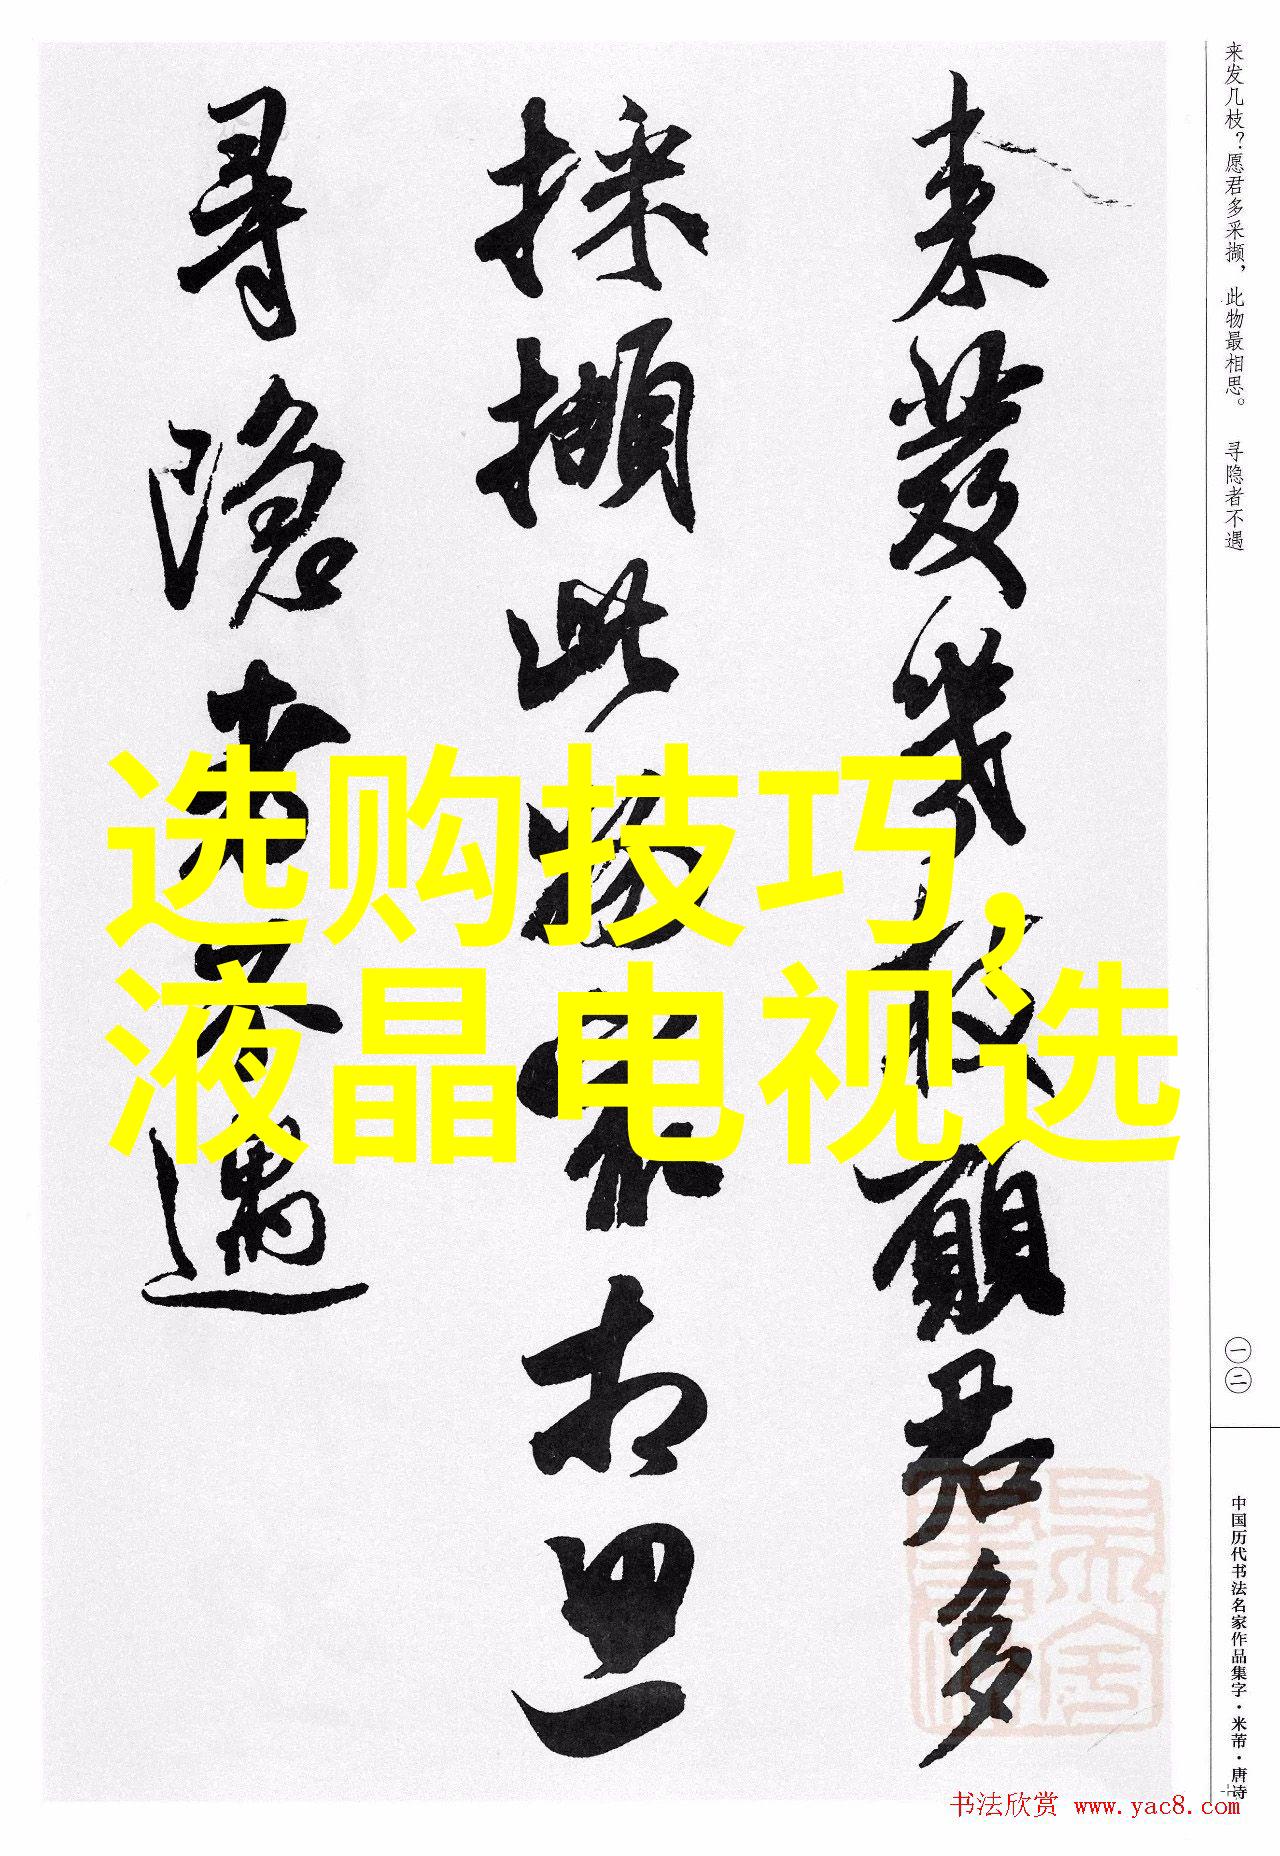 来发几枝？愿君多采撷，此物最相思。 寻隐者不遇
來發幾枝願君多
採擷此物最相思
尋隱者不遇
选购技巧，
液晶电视选
一二
中国历代书法名家作品集字·米芾·唐诗
书法欣赏 www.yac8.com